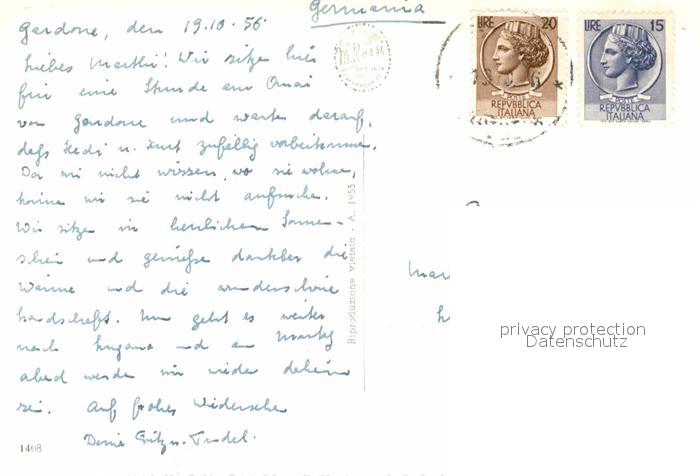 Germania
Gardone, den 19.10.56
Liebes Marthi! Wir sitzen hier
für eine Stunde am Quai
von Gardone und warten darauf,
daß Hedi u. Kurt zufällig vorbeikommen.
Da wir nicht wissen, wo sie wohnen,
können wir sie nicht aufsuchen.
Wir sitzen im herrlichen Sonnen-
schein und genießen dankbar die
Wärme und die wunderschöne
Landschaft. Nun geht es weiter
nach Lugano und am Montag
abend werden wir wieder daheim
sein. Auf frohes Wiedersehen
Deine Fritz u. Trudel.
1408
Riproduzione vietata - A. 1955
LIRE 20
POSTE
REPVBBLICA
ITALIANA
LIRE 15
POSTE
REPVBBLICA
ITALIANA
Mar
privacy protection
Datenschutz